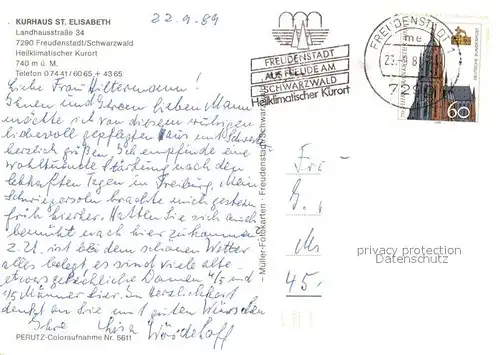 KURHAUS ST. ELISABETH
Landhausstraße 34
7290 Freudenstadt/Schwarzwald
Heilklimatischer Kurort
740 m ü. M.
Telefon 0 74 41 / 60 65 + 43 65
22.9.89
Liebe Frau Hiltermann!
Ihnen und Ihrem lieben Mann
möchte ich von diesem ruhigen
liebevoll gepflegten Haus mit
herzlich grüßen. Ich empfinde eine
wohltuende Stärkung nach den
lebhaften Tagen in Freiburg. Mein
Schwiegersohn brachte mich gestern
früh hierher. Hatten Sie sich auch
bemüht nach hier zu kommen?
z. Zt. ist bei dem schönen Wetter
alles belegt, es sind viele alte
Damen 4/5 und
1/5 Männer hier. In Herzlichkeit
denkt an Sie mit guten Wünschen
Ihre Luise
PERUTZ-Coloraufnahme Nr. 5611
Müller-Fotokarten · Freudenstadt/Schwarzwald
FREUDENSTADT
AUS FREUDE AM
SCHWARZWALD
Heilklimatischer Kurort
FREUDENSTADT 1
me
7290
60
45.-
privacy protection
Datenschutz